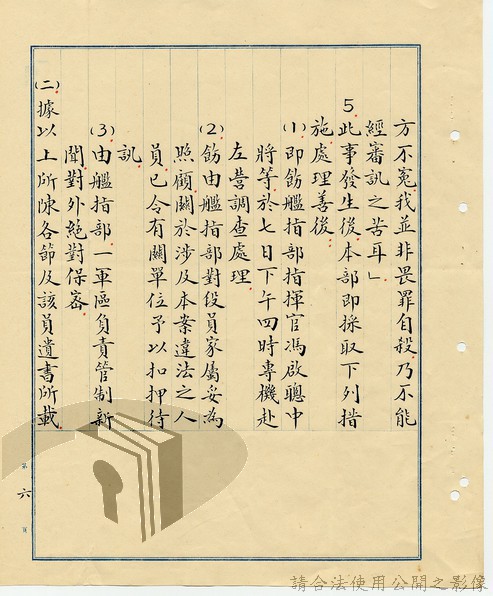 方不冤我並非畏罪自殺乃不能
經審訊之苦耳」
5.此事發生後本部即採取下列措
施處理善後
(1)即飭艦指部指揮官馮啟聰中
將等於七日下午四時專機赴
左營調查處理
(2)飭由艦指部對役員家屬妥為
照顧關於涉及本案違法之人
員已令有關單位予以扣押待
訊
(3)由艦指部一軍區負責管制新
聞對外絕對保密
(二)據以上所陳各節及該員遺書所載
第六頁
請合法使用公開之影像